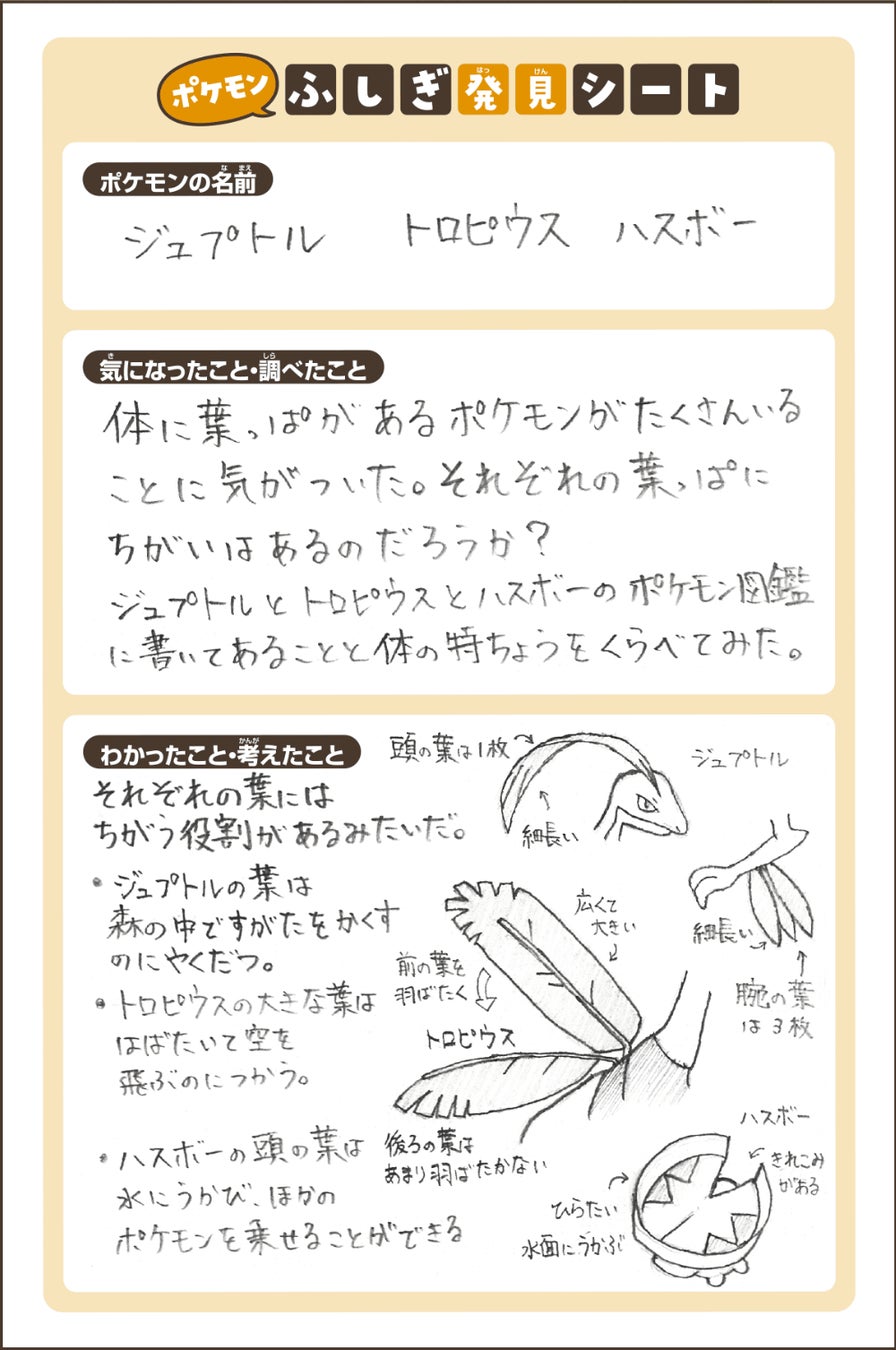 ポケモンふしぎ発見シート
ポケモンの名前
ジュプトル トロピウス ハスボー
気になったこと・調べたこと
体に葉っぱがあるポケモンがたくさんいる
ことに気がついた。それぞれの葉っぱに
ちがいはあるのだろうか?
ジュプトルとトロピウスとハスボーのポケモン図鑑
に書いてあることと体の特ちょうをくらべてみた。
わかったこと・考えたこと
それぞれの葉には
ちがう役割があるみたいだ。
・ジュプトルの葉は
森の中ですがたをかくす
のにやくだつ。
・トロピウスの大きな葉は
はばたいて空を
飛ぶのにつかう。
・ハスボーの頭の葉は
水にうかび、ほかの
ポケモンを乗せることができる
頭の葉は1枚
ジュプトル
細長い
細長い
腕の葉
は3枚
広くて
大きい
前の葉を
羽ばたく
トロピウス
後ろの葉は
あまり羽ばたかない
ハスボー
きれこみ
がある
ひらたい
水面にうかぶ